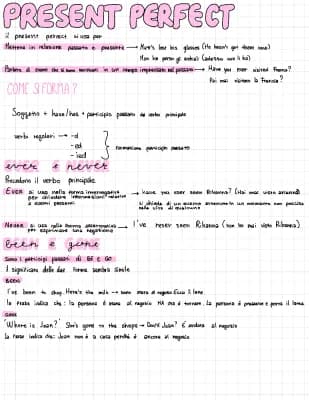 PRESENT PERFECT
il present perfect si usa per
Mettere in relazione passato e presente → Mark's lost his glasses (He hasn't got them now)
Ha perso gli occhiali (adesso non li ha)
Parlare di eventi che si sono verificati in un tempo imprecisato nel passato → Have you ever visited France?
Hai mai visitato la Francia?
COME SI FORMA?
Soggetto + have/has + participio passato del verbo principale
verbi regolari → -d
-ed
-ied
formazione participio passato
ever e never
Precedono il verbo principale
Ever si usa nella forma interrogativa → have you ever seen Rihanna? (Hai mai visto Rihanna)
per chiedere informazioni relative
a eventi passati
si chiede di un evento avvenuto in un momento non preciso
nella vita di qualcuno
Never si usa nella forma affermativa → I've never seen Rihanna (non ho mai visto Rihanna)
per esprimere una negazione
been e gone
Sono i participi passati di BE e GO
Il significato delle due forme sembra simile
BEEN
I've been to shop. Here's the milk → sono stata al negozio. Ecco il latte.
la frase indica che: la persona è stata al negozio MA ora è tornata. La persona è presente e porta il latte
GONE
'Where is Joan?' She's gone to the shops → Dov'è Joan? È andata al negozio
la frase indica che: Joan non è a casa perché è ancora al negozio